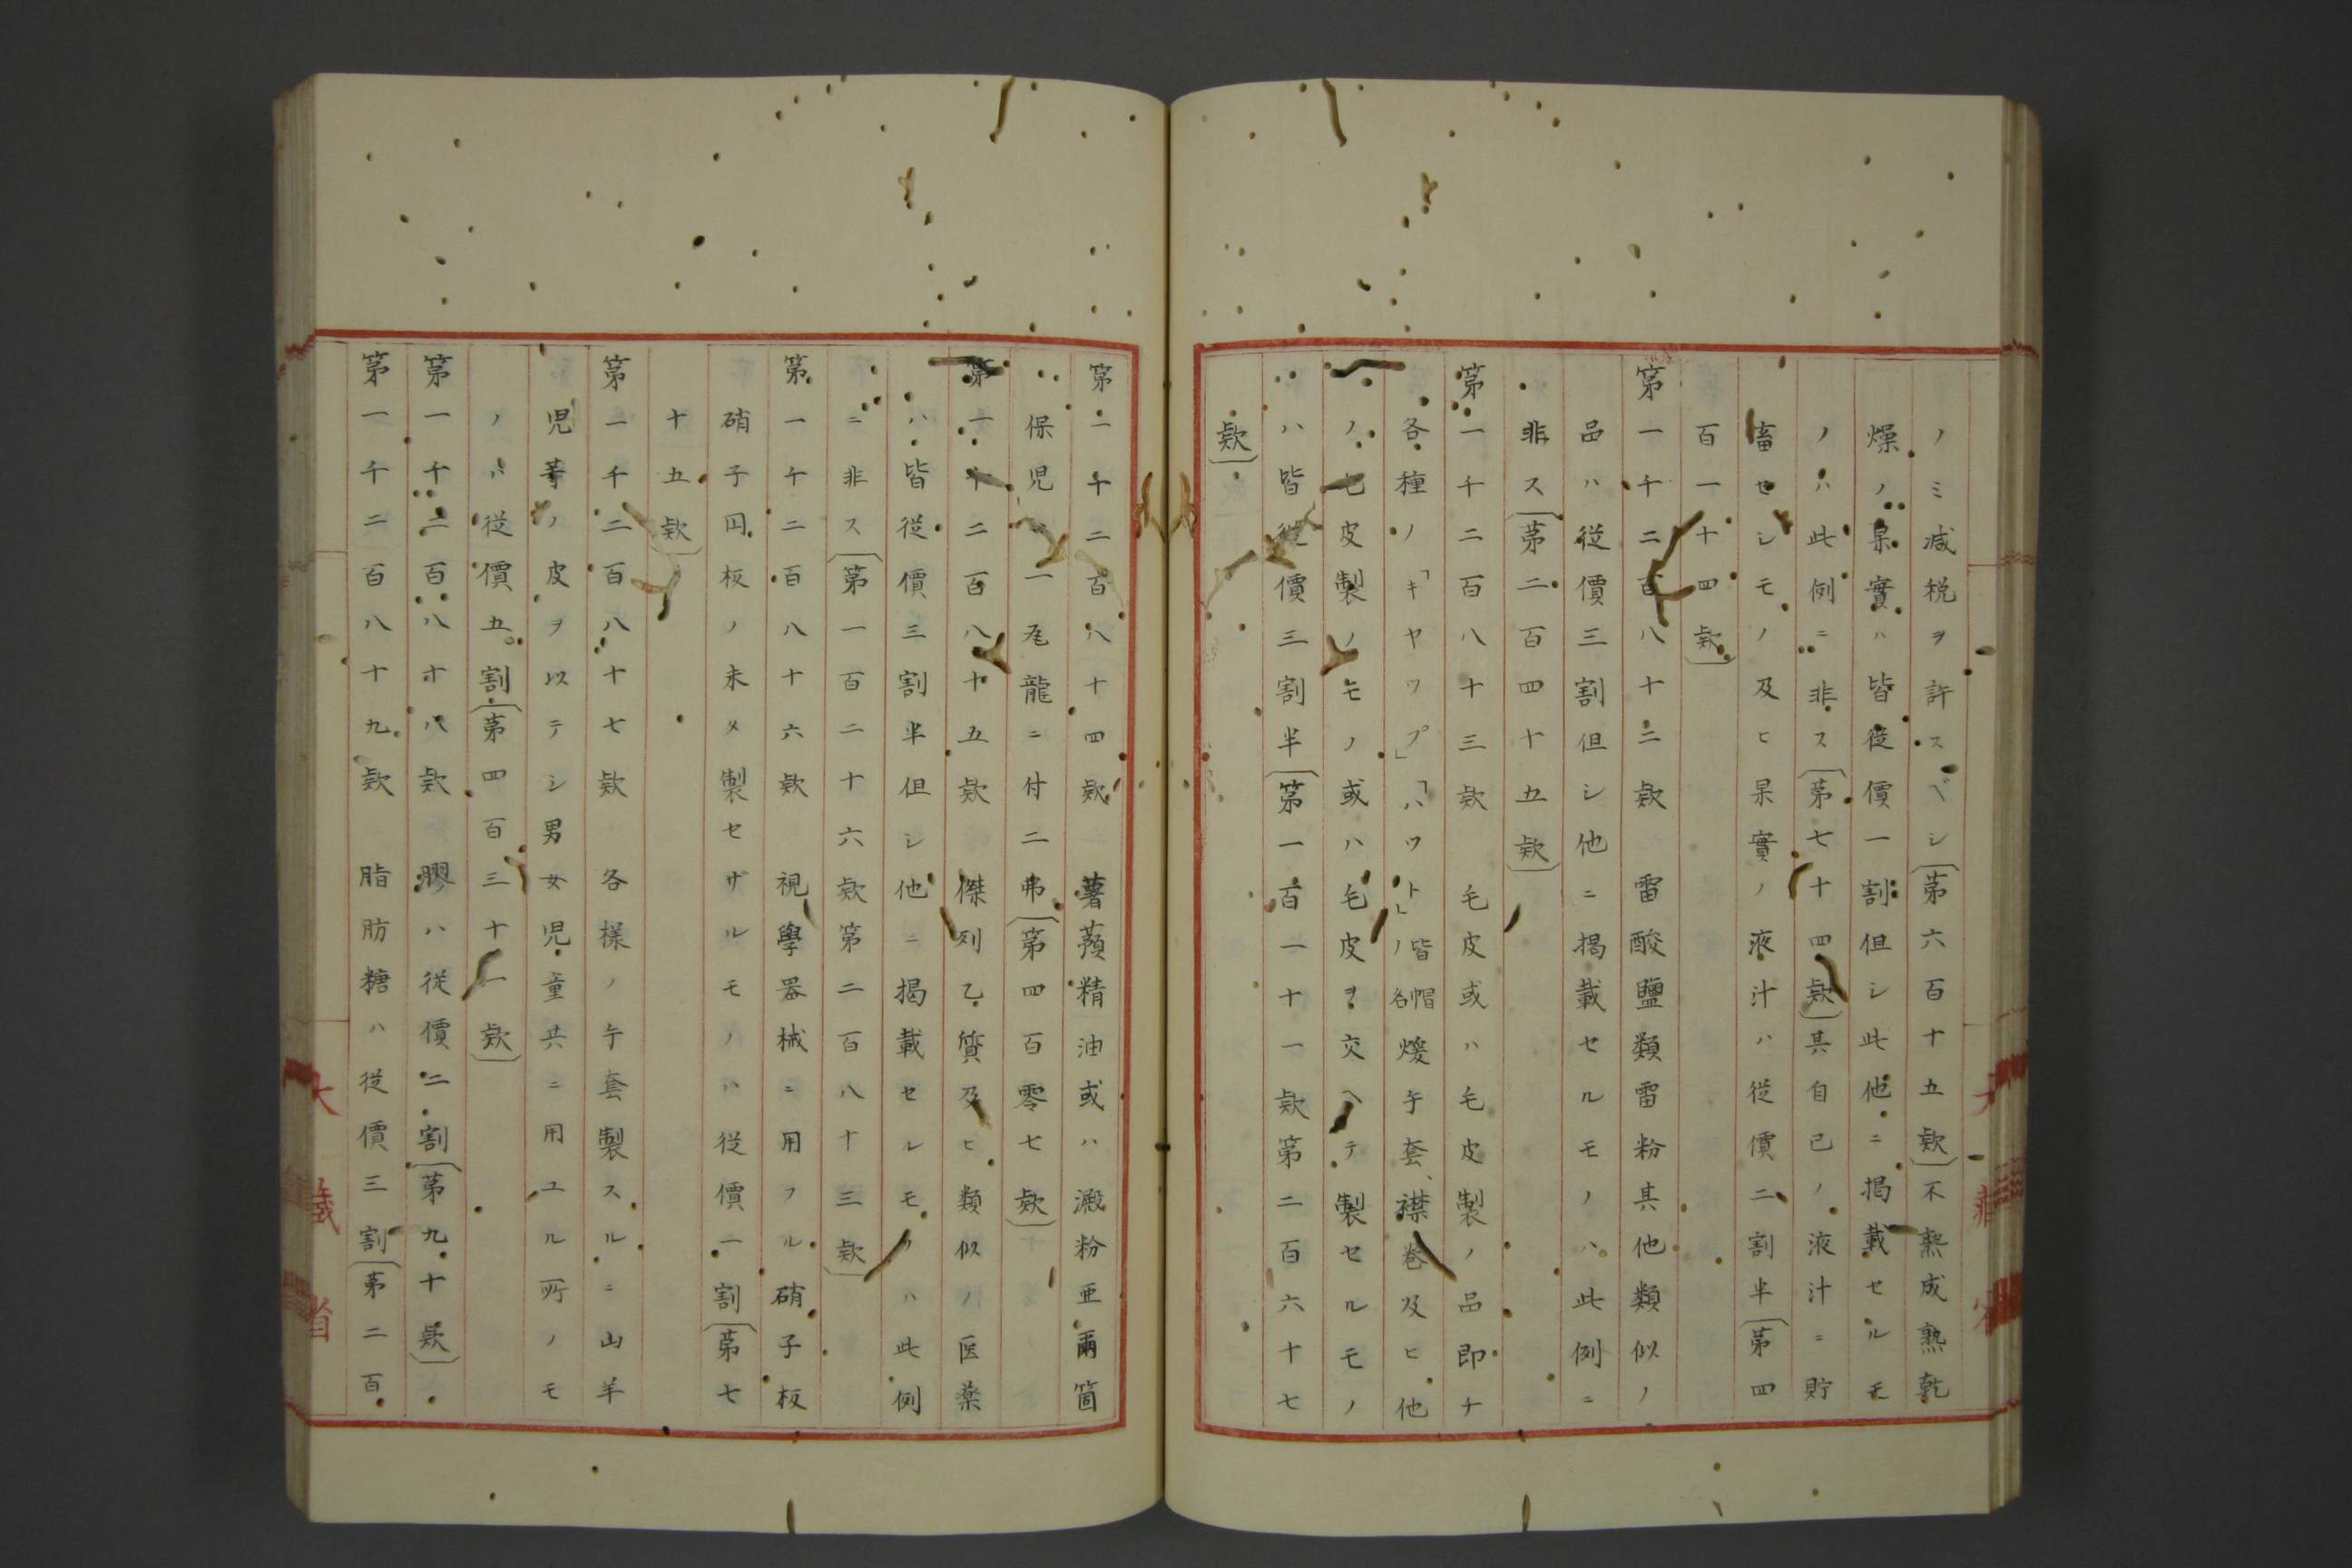 ノミ減税ヲ許スベシ(第六百十五欵)不熟成熟乾
燥ノ杲實ハ皆従價一割但シ此他ニ掲載セルモ
ノハ此例ニ非ス(第七十四欵)其自己ノ液汁ニ貯
畜セシモノ及ヒ杲實ノ液汁ハ従價二割半(第四
百一十四欵)
第一千二百八十二欵 雷酸鹽類雷粉其他類似ノ
品ハ従價三割但シ他ニ掲載セルモノハ此例ニ
非ス(第二百四十五欵)
第一千二百八十三欵 毛皮或ハ毛皮製ノ品即チ
各種ノ「キヤワプ」「ハワト」ノ皆帽各煖手套、襟巻及ヒ他
ノ毛皮製ノモノ或ハ毛皮ヲ交ヘテ製セルモノ
ハ皆従價三割半(第一百一十一欵第二百六十七
欵)
第一千二百八十四欵 薯蕷精油或ハ澱粉亜爾箇
保児 一瓦龍ニ付二弗(第四百零七欵)
第一千二百八十五欵 傑列乙質及ヒ類似ノ医薬
ハ皆従價三割半但シ他ニ掲載セルモノハ此例
ニ非ス(第一百二十六欵第二百八十三欵)
第一千二百八十六欵 視學器械ニ用フル硝子板
硝子円板ノ未タ製セザルモノハ従價一割(第七
十五欵)
第一千二百八十七欵 各様ノ手套製スルニ山羊
児等ノ皮ヲ以テシ男女児童共ニ用ユル所ノモ
ノハ従價五割(第四百三十一欵)
第一千二百八十八欵 膠ハ従價二割(第九十欵)
第一千二百八十九欵 脂肪糖ハ従價三割(第二百
大蔵省